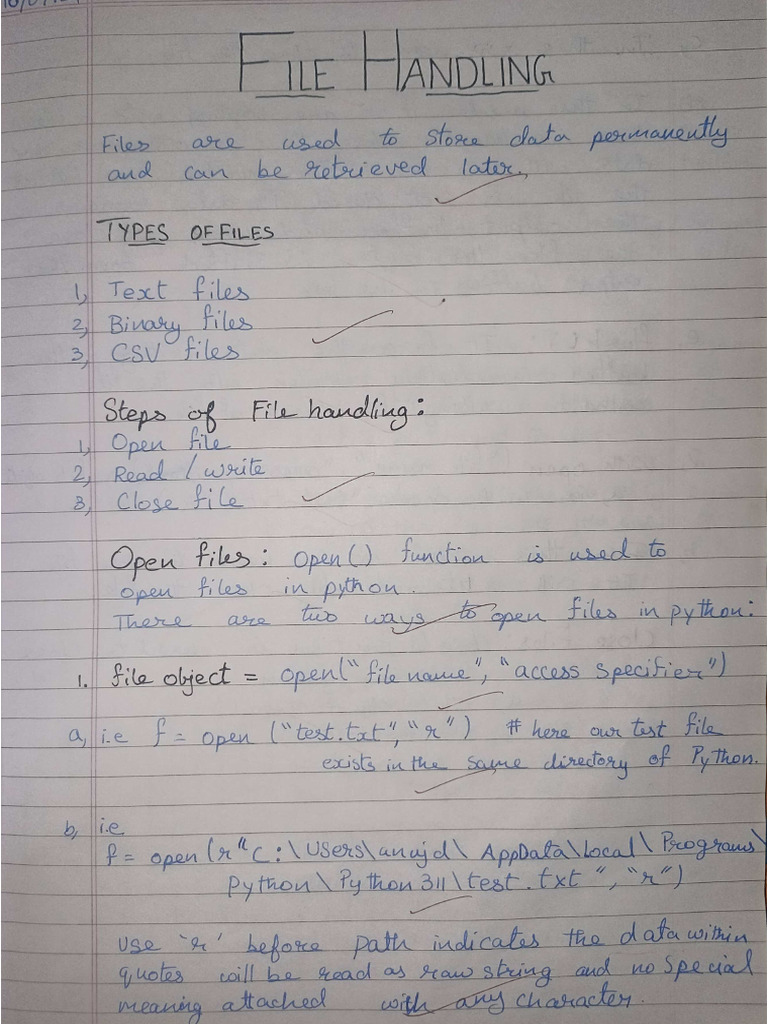 FILE HANDLING
Files are used to store data permanently
and can be retrieved later.
TYPES OF FILES
1) Text files
2) Binary files
3) CSV files
Steps of File handling:
1) Open file
2) Read / write
3) Close file
Open files: open() function is used to
open files in python.
There are two ways to open files in python:
1. file object = open("file name", "access specifier")
a) i.e f = open ("test.txt", "r") # here our test file
exists in the same directory of Python.
b) i.e
f = open (r"C:\Users\anujd\AppData\local\Programs\
Python\Python311\test.txt", "r")
use 'r' before path indicates the data within
quotes will be read as raw string and no special
meaning attached with any character.